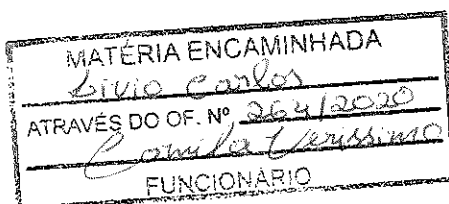 MATÉRIA ENCAMINHADA
Livio Carlos
ATRAVÉS DO OF. Nº 264/2020
Camila Verissimo
FUNCIONÁRIO